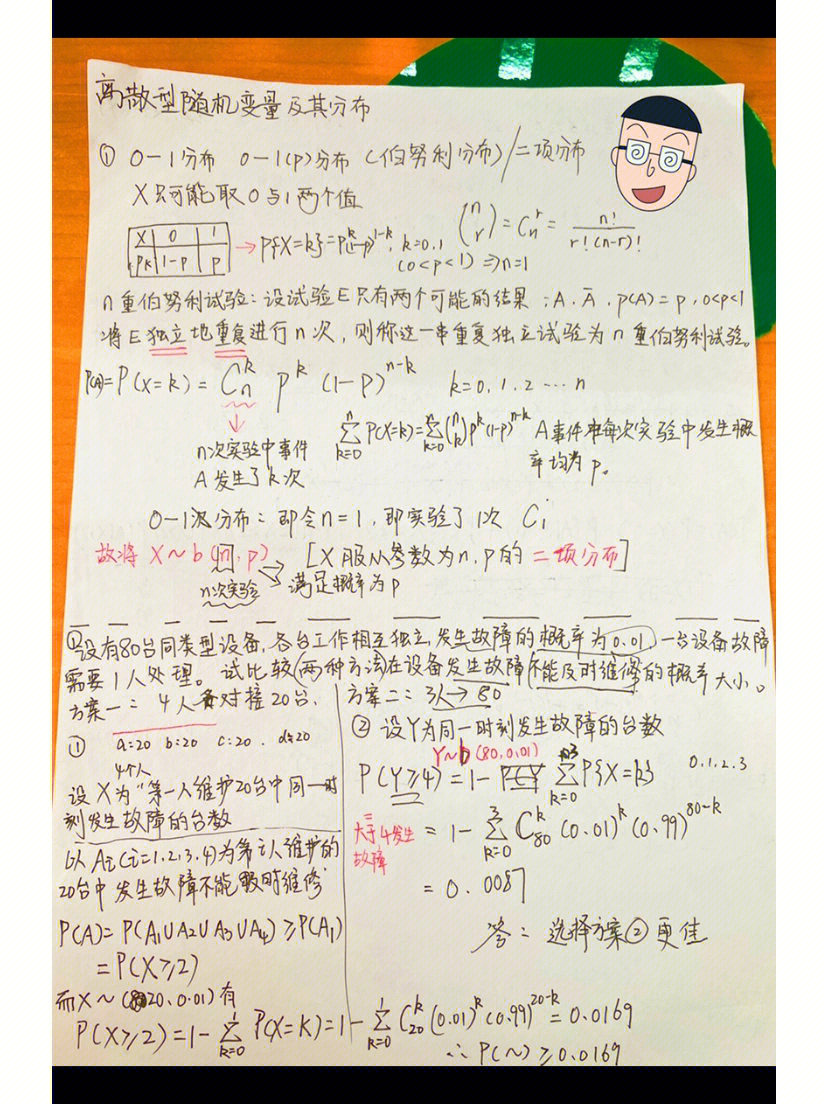 离散型随机变量及其分布
① 0-1分布 0-1(p)分布 (伯努利分布)/二项分布
X只可能取0与1两个值
X 0 1
Pk 1-p p
→ P{X=k}=p^k(1-p)^{1-k}, k=0.1
(0<p<1) ⇒n=1
(n r) = C_n^r = n!/r!(n-r)!
n重伯努利试验：设试验E只有两个可能的结果：A. Ā. P(A)=p, 0<p<1
将E独立地重复进行n次，则称这一串重复独立试验为n重伯努利试验。
P(X=k) = C_n^k p^k (1-p)^{n-k} k=0.1.2…n
n次实验中事件
A发生了k次
∑_{k=0}^{n} P(X=k)=∑_{k=0}^{n}(n k)p^k(1-p)^{n-k} A事件在每次实验中发生概
率均为p。
0-1分布：即令n=1，即实验了1次
故将 X~b(n, p) → [X服从参数为n, p的二项分布]
n次实验 满足概率为p
设有80台同类型设备，各台工作相互独立，发生故障的概率为0.01，一台设备故障
需要1人处理。试比较两种方法在设备发生故障不能及时维修的概率大小。
方案一：4人 对接20台，
方案二：3人→80
① a=20 b=20 c=20. d=20
4个人
设X为"第一人维护20台中同一时
刻发生故障的台数
以Ai(i=1.2.3.4)为第i人维护的
20台中发生故障不能 时维修
P(A)=P(A₁∪A₂∪A₃∪A₄)≥P(A₁)
=P(X≥2)
而X~(20, 0.01)有
P(X≥2)=1-∑_{k=0}^{1} P(X=k)=1-∑_{k=0}^{1} C_{20}^k (0.01)^k (0.99)^{20-k}=0.0169
∴P(~)≥0.0169
② 设Y为同一时刻发生故障的台数
Y~b(80,0.01)
P(Y≥4)=1-∑_{k=0}^{3}P{X=k} 0.1.2.3
大于4发生
故障
=1-∑_{k=0}^{3} C_{80}^k (0.01)^k (0.99)^{80-k}
=0.0087
答：选择方案②更佳